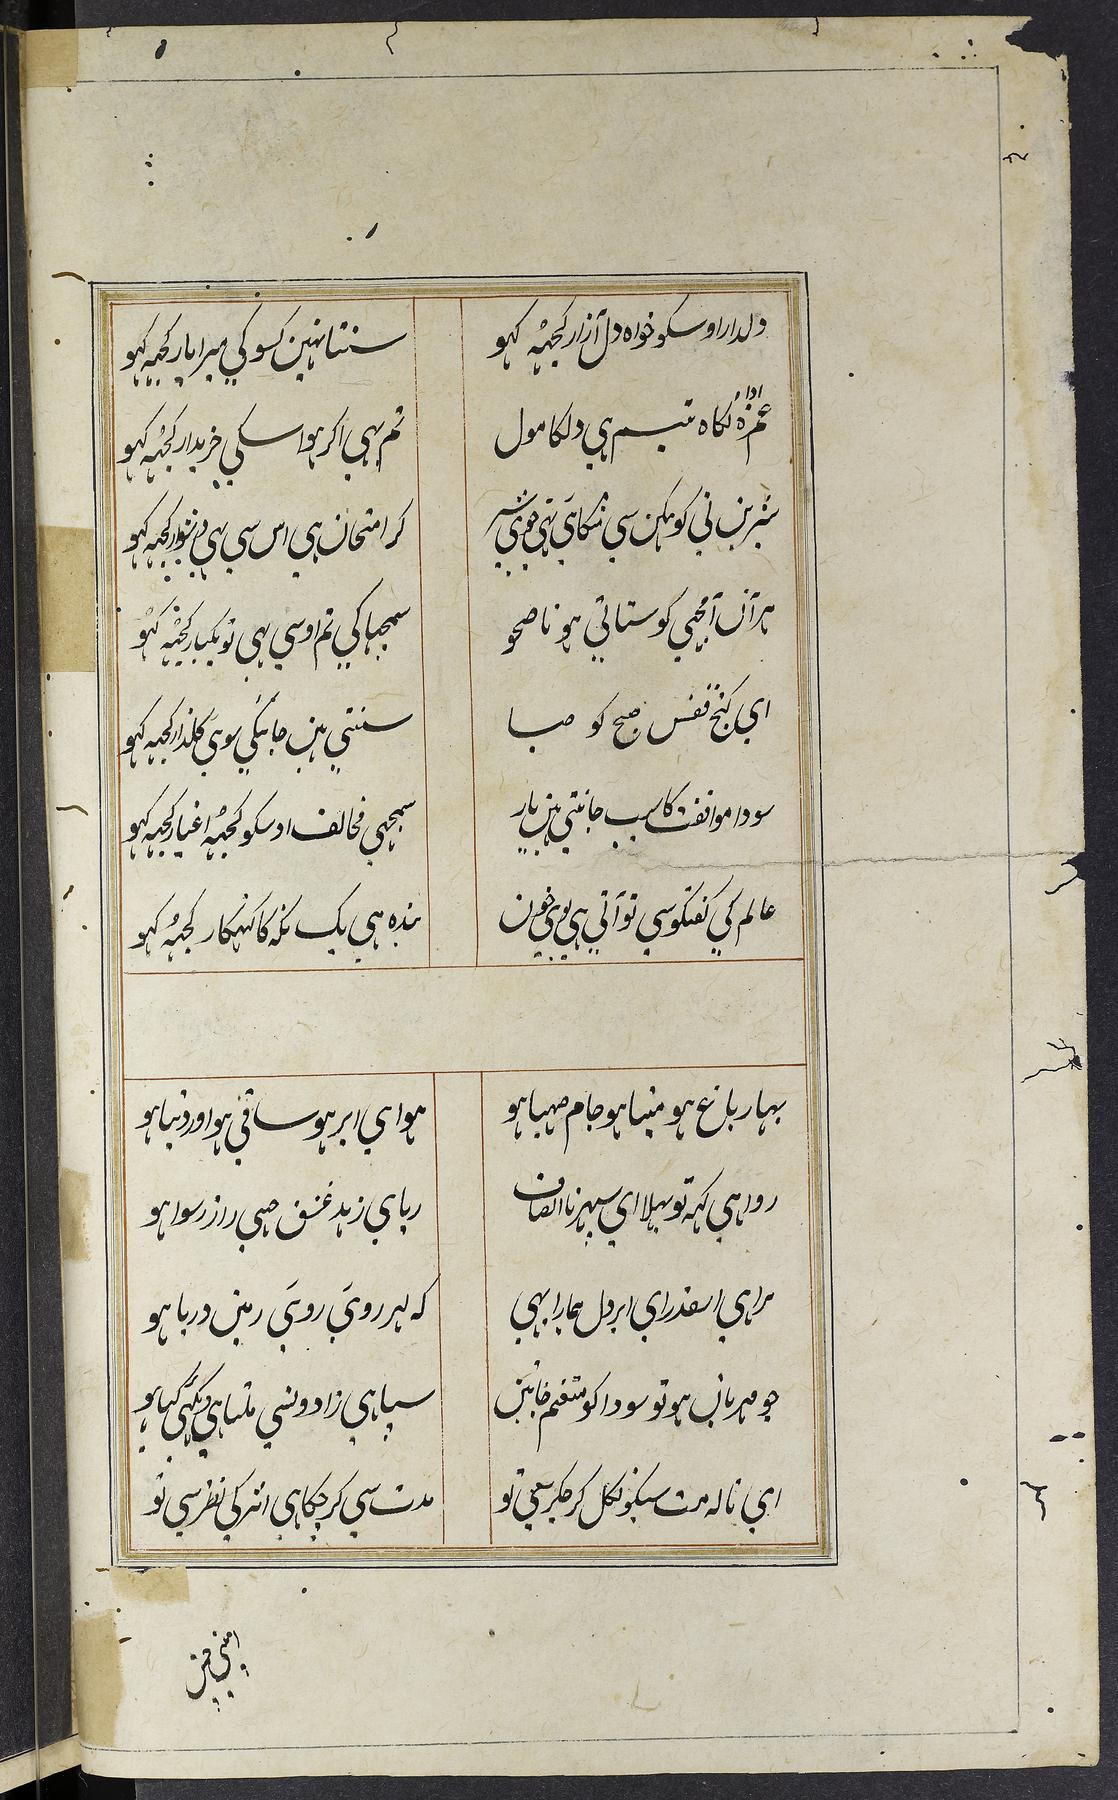 دلدار اوسکو خواه دل آزار کجهه کهو
سنتا نهین کسو کی میرا یار کجهه کهو
غمزه ادا نکاه تبسم هی دلکا مول
تم بهی اکر هو اسکی خریدار کجهه کهو
شیرین نی کوهکن سی منکائی تهی جوی شیر
کر امتحان هی اس سی بهی دشوار کجهه کهو
هر آن آ مجهی کو ستاتی هو ناصحو
سمجها کی تم اوسی بهی تو یکبار کجهه کهو
ای کنج قفس صبح کو صبا
سنتی هین جائیکی سوی کلذار کجهه کهو
سودا موافقت کا سبب جانتی هین یار
سمجهی مخالف اوسکو کجهه اغیار کجهه کهو
عالم کی کفتکو سی تو آتی هی بوی خون
بنده هی یک نکه کا کنهکار کجهه کهو
بهار باغ هو مینا هو جام صهبا هو
هوا هی ابر هو ساقی هو اور دنیا هو
روا هی کهه تو بهلا ای سپهر ناانصاف
ریای زهد چهپی راز رسوا هو
بهرا هی اسقدر ای ابر دل همارا بهی
که لهر روئی روئی زمین دریا هو
جو مهربان هو تو سودا کو مغتنم جانین
سپاهی زادونسی ملتا هی دیکهئی کیا هو
ای ناله مت سبک نکل کر جکر سی تو
مدت سی کر چکا هی اثر کی نظر سی تو
اپنی چمن